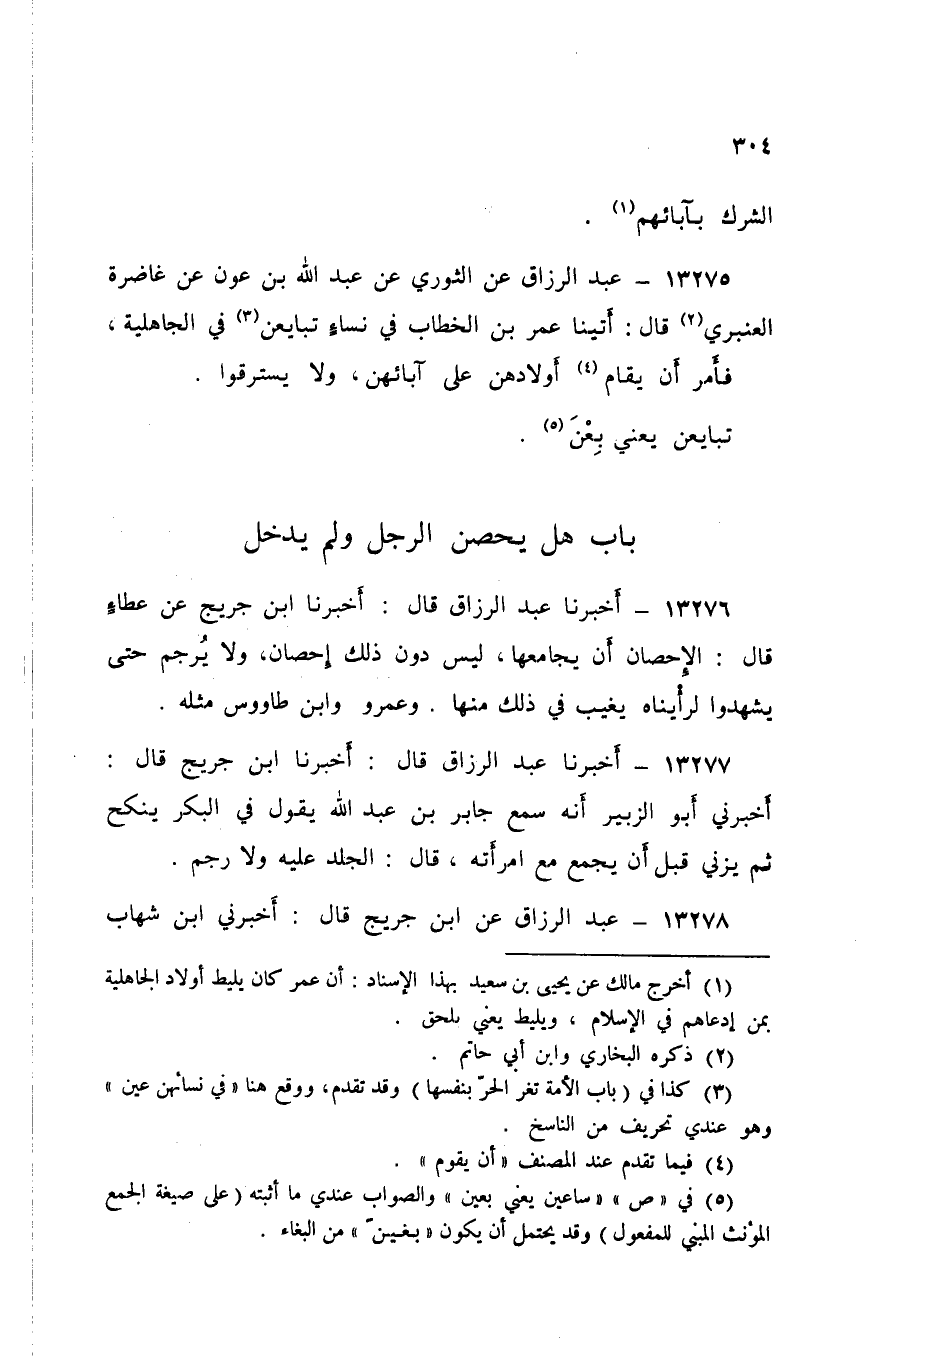 ٣٠٤
الشرك بآبائهم (١) .
١٣٢٧٥ – عبد الرزاق عن الثوري عن عبد الله بن عون عن غاضرة
العنبري (٢) قال : أتينا عمر بن الخطاب في نساءٍ تبايعن (٣) في الجاهلية ،
فأَمر أَن يقام (٤) أَولادهن على آبائهن ، ولا يسترقوا .
تبايعن يعني بِعْنَ (٥) .
باب هل يحصن الرجل ولم يدخل
١٣٢٧٦ – أَخبرنا عبد الرزاق قال : أَخبرنا ابن جريج عن عطاءٍ
قال : الإِحصان أَن يجامعها ، ليس دون ذلك إحصان، ولا يُرجم حتى
يشهدوا لرأَيناه يغيب في ذلك منها . وعمرو وابن طاووس مثله .
١٣٢٧٧ – أَخبرنا عبد الرزاق قال : أَخبرنا ابن جريج قال :
أَخبرني أَبو الزبير أَنه سمع جابر بن عبد الله يقول في البكر ينكح
ثم يزني قبل أَن يجمع مع امرأَته ، قال : الجلد عليه ولا رجم .
١٣٢٧٨ – عبد الرزاق عن ابن جريج قال : أَخبرني ابن شهاب
(١) أخرج مالك عن يحيى بن سعيد بهذا الإسناد : أن عمر كان يليط أولاد الجاهلية
بمن إدعاهم في الإسلام ، ويليط يعني يلحق .
(٢) ذكره البخاري وابن أبي حاتم .
(٣) كذا في ( باب الأمة تغر الحرّ بنفسها ) وقد تقدم، ووقع هنا « في نسائهن عين »
وهو عندي تحريف من الناسخ .
(٤) فيما تقدم عند المصنف « أن يقوم » .
(٥) في « ص » « ساعين يعني بعين » والصواب عندي ما أثبته ( على صيغة الجمع
المؤنث المبني للمفعول ) وقد يحتمل أن يكون « بغين ّ » من البغاء .